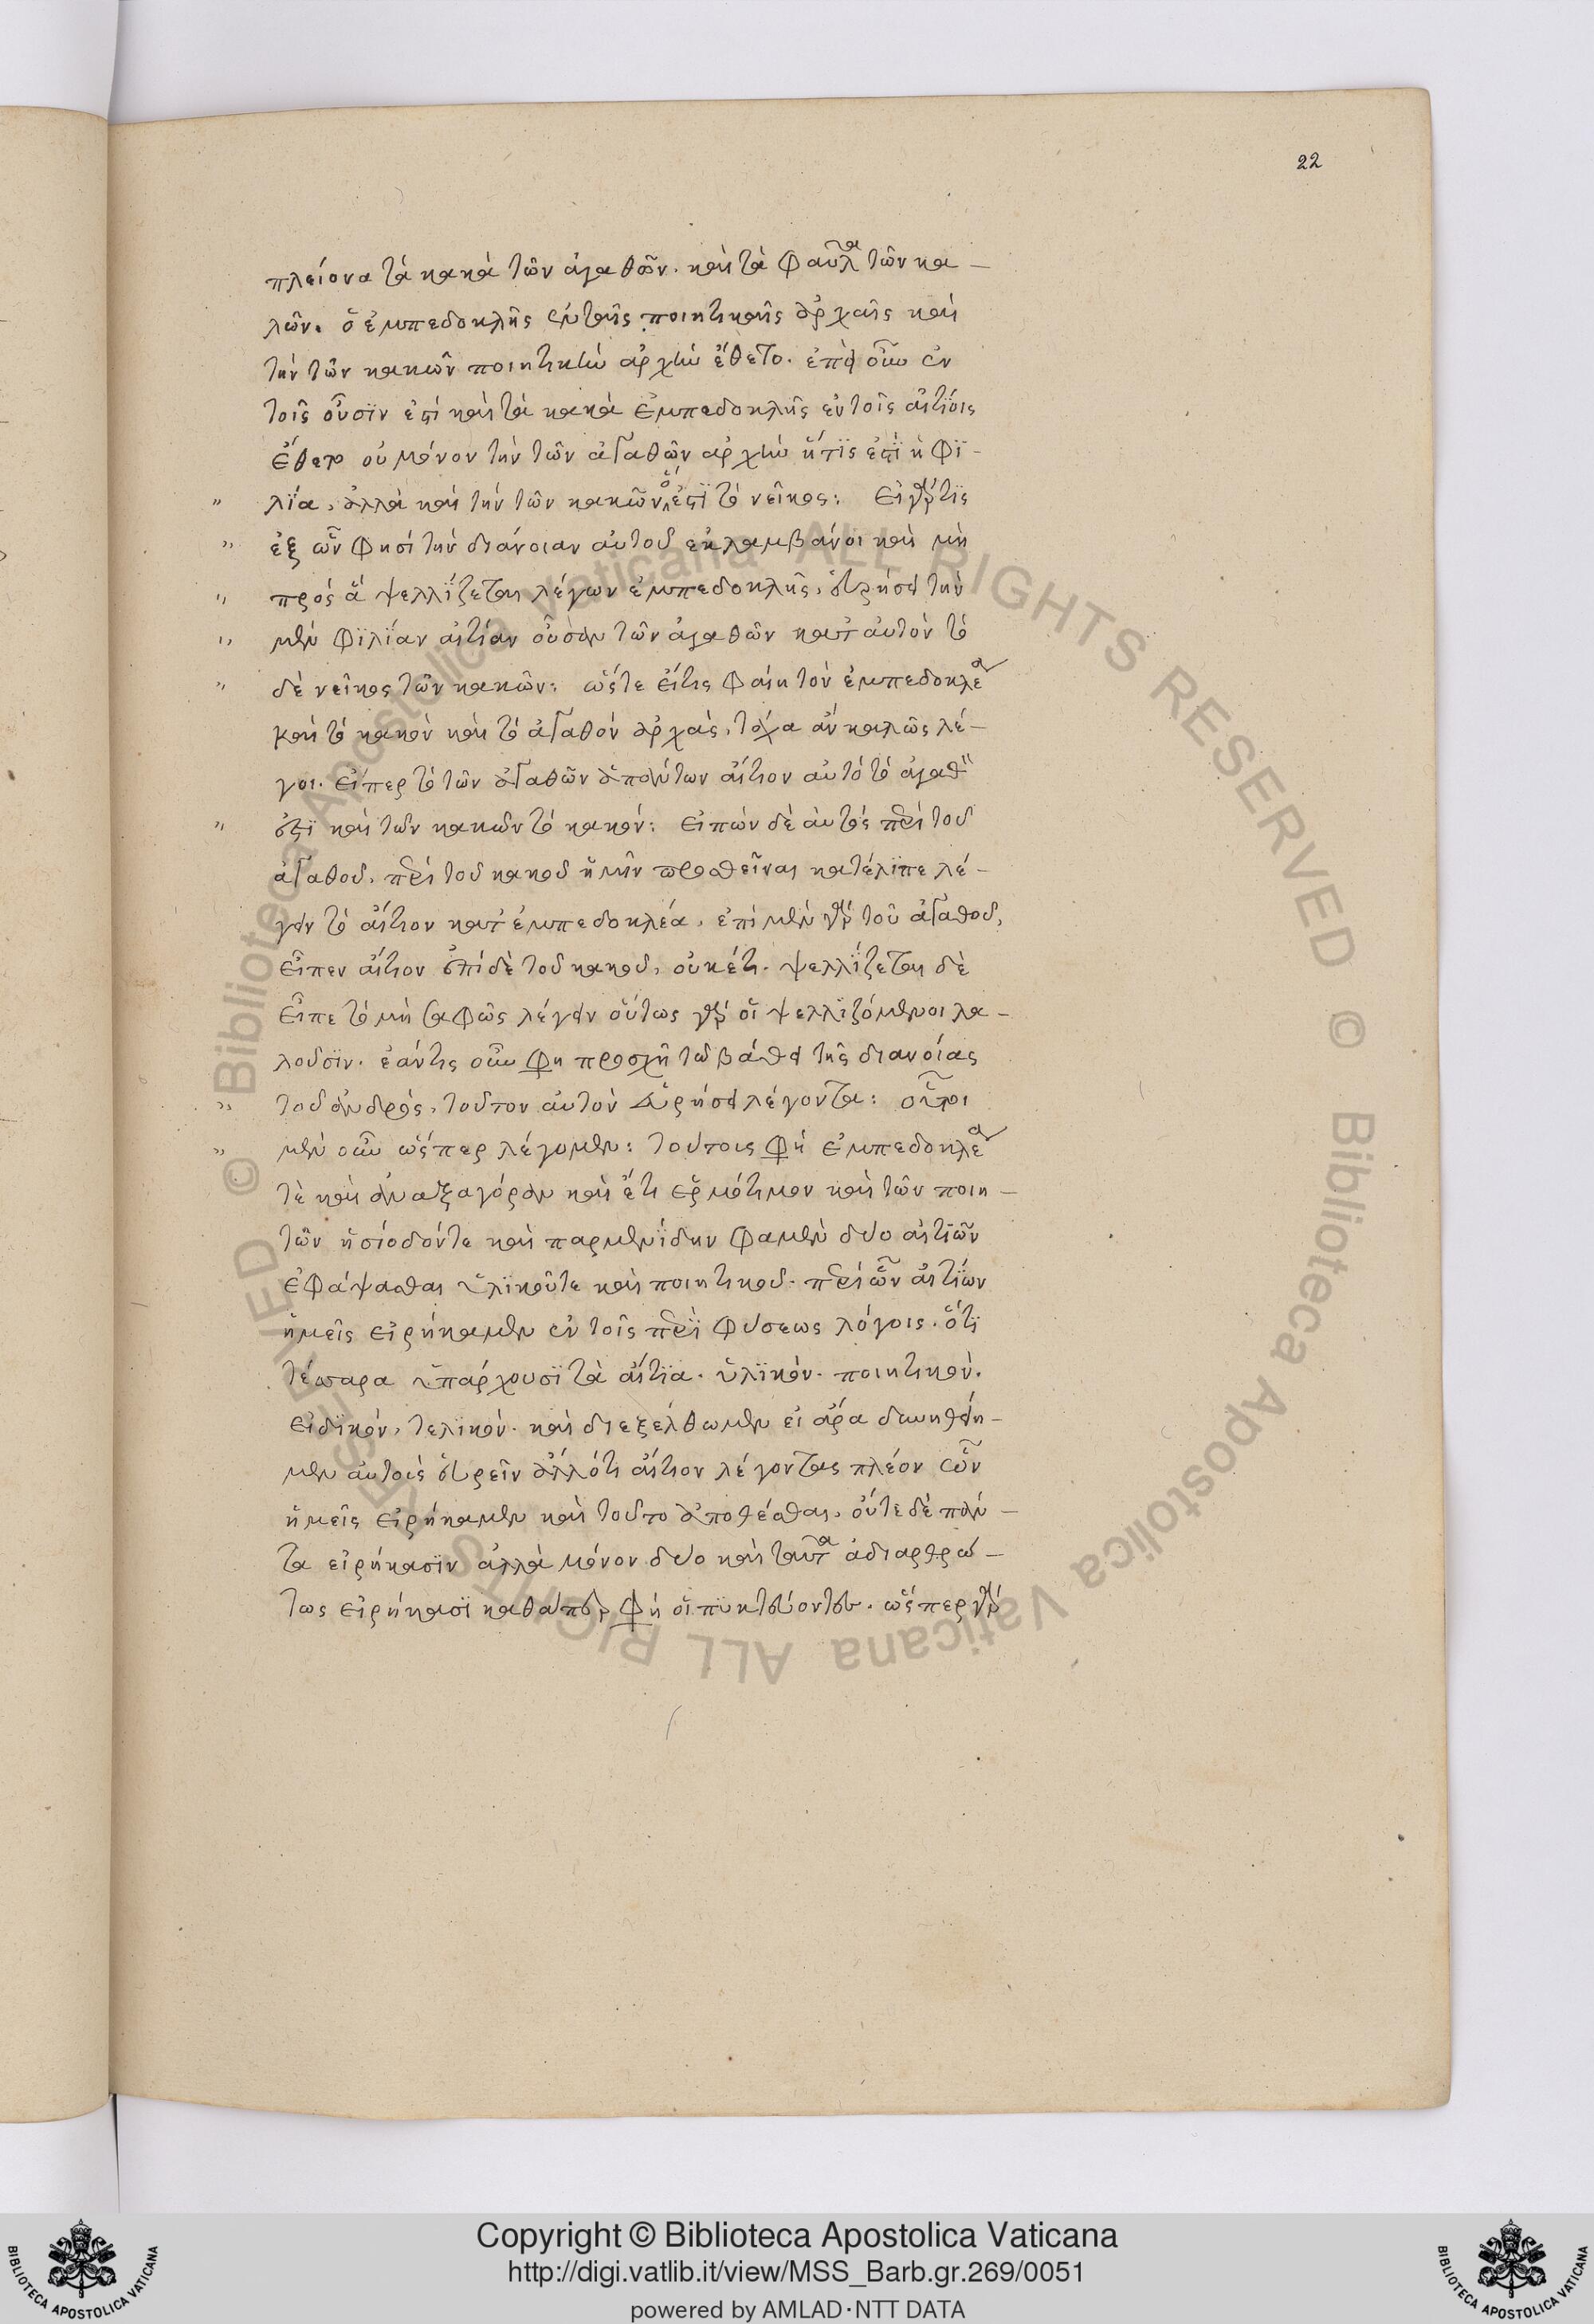 22
πλείονα τὰ κακὰ τῶν ἀγαθῶν. καὶ τὰ φαῦλα τῶν κα–
λῶν. ὁ ἐμπεδοκλῆς ἐν ταῖς ποιητικαῖς ἀρχαῖς καὶ
τὴν τῶν κακῶν ποιητικὴν ἀρχὴν ἔθετο. ἐπεὶ οὖν ἐν
τοῖς οὖσϊν ἐστὶ καὶ τὰ κακὰ ἐμπεδοκλῆς ἐν τοῖς αἰτίοις
ἔθετο οὐ μόνον τὴν τῶν ἀγαθῶν ἀρχὴν ἥτϊς ἐστὶ ἡ φϊ–
" λΐα, ἀλλὰ καὶ τὴν τῶν κακῶν ὅ ἐστϊ τὸ νεῖκος: Εἰ γάρ τϊς
" ἐξ ὧν φησὶ τὴν διάνοιαν αὐτοῦ ἐκλαμβάνοι καὶ μὴ
" πρὸς ἃ ψελλΐζεται λέγων ἐμπεδοκλῆς, εὑρήσει τὴν
" μὲν φϊλίαν αἰτίαν οὖσαν τῶν ἀγαθῶν κατ αὐτὸν τὸ
" δὲ νεῖκος τῶν κακῶν: ὥστε εἴτις φαίη τὸν ἐμπεδοκλέα
καὶ τὸ κακὸν καὶ τὸ ἀγαθὸν ἀρχὰς, τάχα ἂν καλῶς λέ–
γοι. εἴπερ τὸ τῶν ἀγαθῶν ἁπάντων αἴτιον αὐτὸ τὸ ἀγαθὸν
" ἐστϊ καὶ τῶν κακῶν τὸ κακόν: Εἰπὼν δὲ αὐτὸς περὶ τοῦ
ἀγαθοῦ, περὶ τοῦ κακοῦ ἡμῖν προσθεῖναι κατέλϊπε λέ–
γειν τὸ αἴτιον κατ ἐμπεδοκλέα, ἐπὶ μὲν γὰρ τοῦ ἀγαθοῦ,
εἶπεν αἴτιον ἐπὶ δὲ τοῦ κακοῦ, οὐκέτι. ψελλΐζεται δὲ
εἶπε τὸ μὴ σαφῶς λέγειν οὕτως γὰρ οἱ ψελλϊζόμενοι λα–
λοῦσϊν. ἐάν τις οὖν φη προσχῆ τῶ βάθει τῆς διανοίας
" τοῦ ἀνδρὸς, τοῦτον αὐτὸν εὑρήσει λέγοντα: οὗτοι
" μὲν οὖν ὥσπερ λέγομεν: τούτοις φὴ ἐμπεδοκλέα
τὲ καὶ ἀναξαγόραν καὶ ἔτι ἑρμότιμον καὶ τῶν ποιη–
τῶν ἡσίοδόντε καὶ παρμενΐδην φαμὲν δύο αἰτϊῶν
ἐφάψασθαι ὑλϊκοῦτε καὶ ποιητικοῦ. περὶ ὧν αἰτΐων
ἡμεῖς εἰρήκαμεν ἐν τοῖς περὶ φύσεως λόγοις. ὅτϊ
τέσσαρα ὑπάρχουσϊ τὰ αἴτϊα. ὑλϊκόν. ποιητικόν.
εἰδϊκόν, τελϊκόν. καὶ διεξέλθωμεν εἰ ἄρα δυνηθείη–
μεν αὐτοὺς εὑρεῖν ἀλλότι αἴτιον λέγοντας πλέον ὧν
ἡμεῖς εἰρήκαμεν καὶ τοῦτο ἀποθέσθαι, οὔτε δὲ πάν–
τα εἰρήκασϊν ἀλλὰ μόνον δύο καὶ ταῦτα ἀδιαρθρώ–
τως εἰρήκασϊ καθάπερ φὴ οἱ πυκτεύοντες. ὥσπερ γὰρ
Copyright © Biblioteca Apostolica Vaticana
http://digi.vatlib.it/view/MSS_Barb.gr.269/0051
powered by AMLAD·NTT DATA
BIBLIOTECA APOSTOLICA VATICANA
BIBLIOTECA APOSTOLICA VATICANA
© Biblioteca Apostolica Vaticana ALL RIGHTS RESERVED © Biblioteca Apostolica Vaticana ALL RIGHTS RESERVED